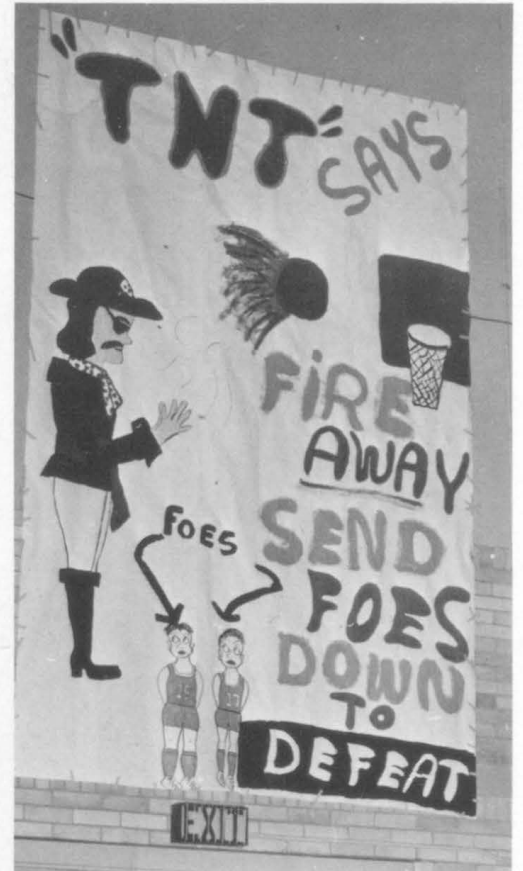 "TNT"
SAYS
FiRE
AWAY
SEND
FOES
FOES
DOWN
TO
DEFEAT
EXIT